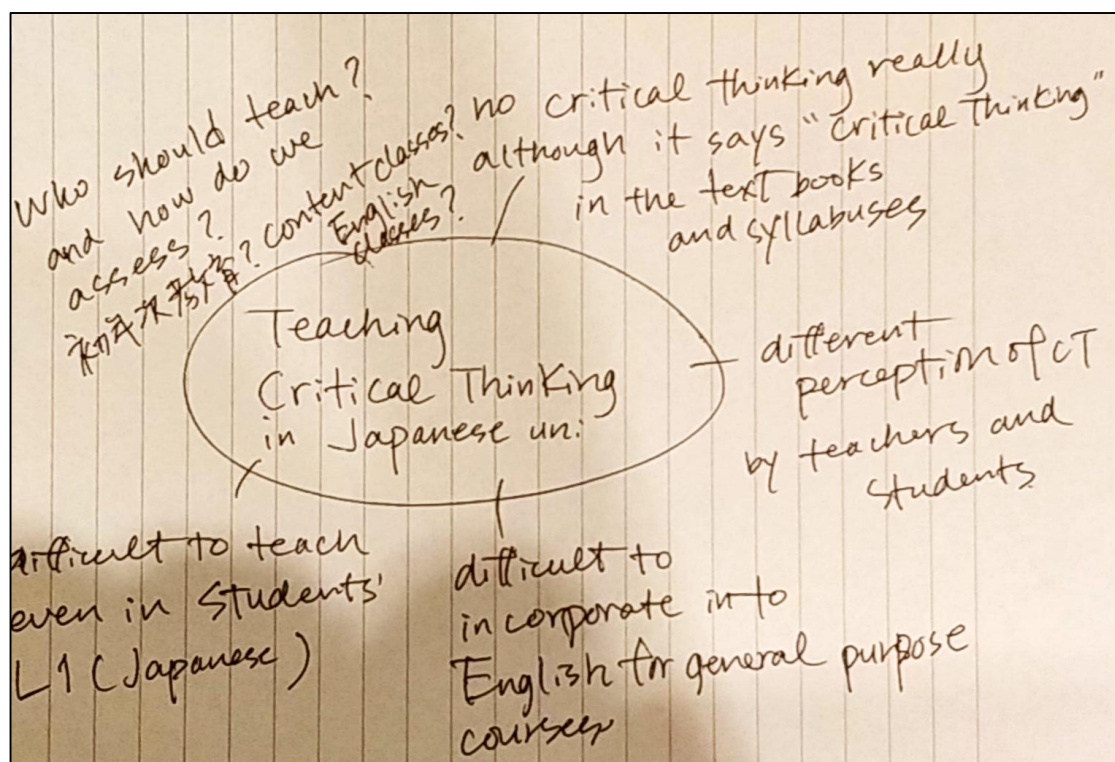 Who should teach?
and how do we
assess?
初年次教育? content classes?
English
classes?
no critical thinking really
although it says "Critical Thinking"
in the text books
and syllabuses
Teaching
Critical Thinking
in Japanese uni
different
perception of CT
by teachers and
students
difficult to teach
even in students'
L1 (Japanese)
difficult to
incorporate into
English for general purpose
courses